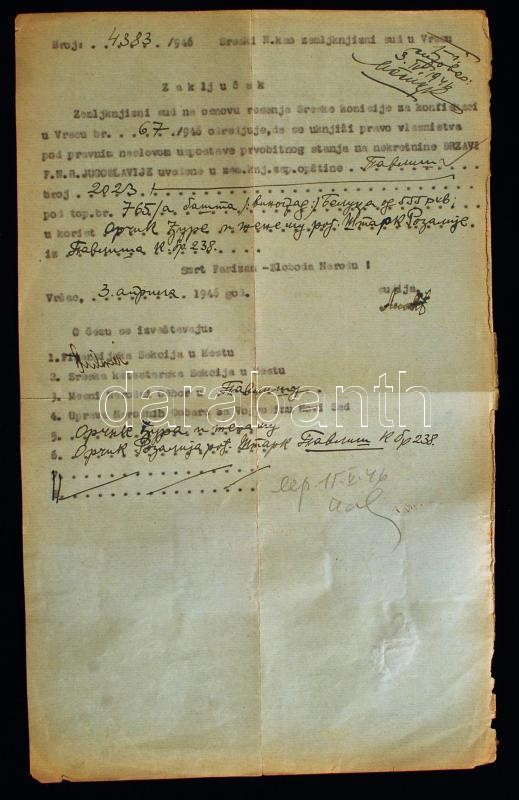 Broj: . 4383 . 1946 Sreski N.kao zemljknjizni sud u Vrscu
3. IV 1946
Z a k l j u č a k
Zemljknjizni sud na osnovu resenja Sreske komisije za konfiskaci
u Vrscu br. . . 67 . 1946 odredjuje, da se uknjiži pravo vlasnistva
pod pravnim naslovom uspostave prvobitnog stanja na nekretnine DRZAVI
F.N.R. JUGOSLAVIJE uvedene u zem.knj.ul.opštine . Павлиш
broj . 2023 .
pod top.br. 765/a башта /виноград/
u korist Орчик Ђуре и жене му рођ. Штарк Розалије
iz Павлиша К бр 238.
Smrt Fasizmu - Sloboda Narodu !
Vršac, . 3. априла . 1946 god. sudija,
O čemu se izveštavaju:
1. Finansijska Sekcija u Mestu
2. Sreska katastarska Sekcija u Mestu
3. Mesni Narodni Odbor u . Павлишу
4. Uprava Narodnih Dobara za Vojvodinu Novi Sad
5. Орчик Ђура и жена му
6. Орчик Розалија рођ. Штарк Павлиш К бр 238
15. V. 46
darabanth